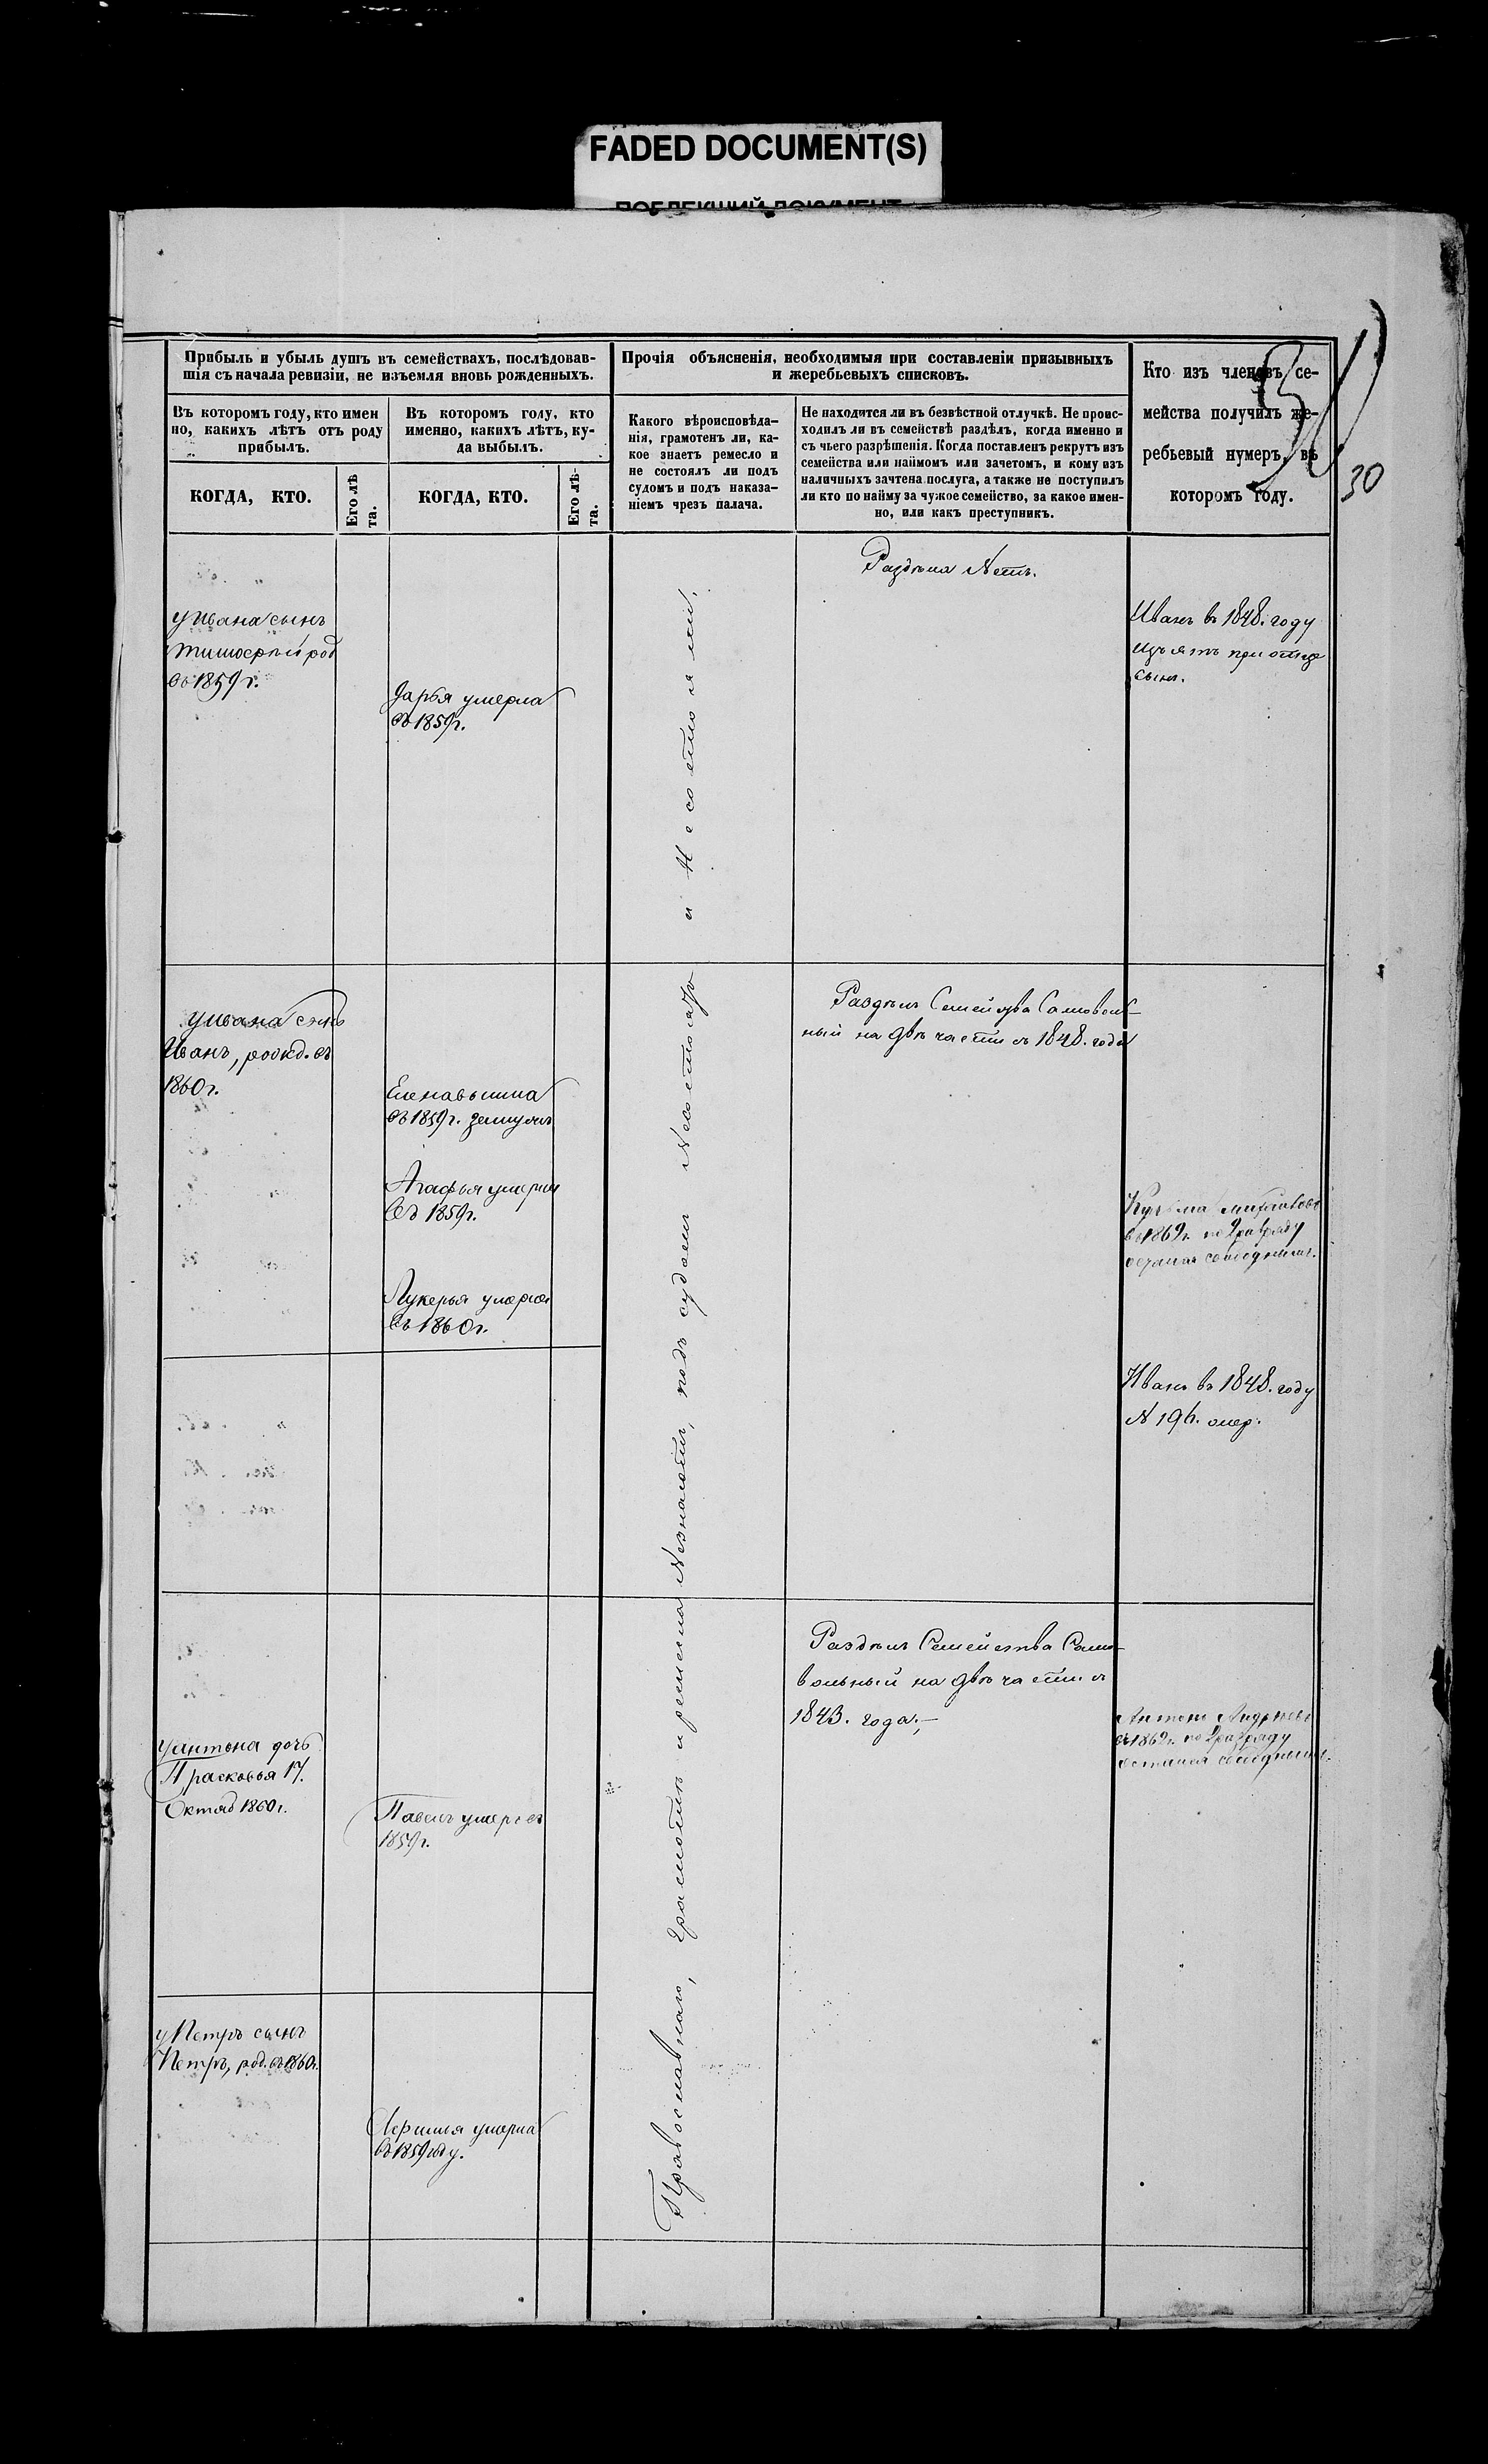 FADED DOCUMENT(S)
30
Прибыль и убыль душъ въ семействахъ, послѣдовав-
шія съ начала ревизіи, не изъемля вновь рожденныхъ.
Въ которомъ году, кто имен
но, какихъ лѣтъ отъ роду
прибылъ.
КОГДА, КТО.
Его лѣ
та.
Въ которомъ году, кто
именно, какихъ лѣтъ, ку-
да выбылъ.
КОГДА, КТО.
Его лѣ-
та.
Прочія объясненія, необходимыя при составленіи призывныхъ
и жеребьевыхъ списковъ.
Какого вѣроисповѣда-
нія, грамотенъ ли, ка-
кое знаетъ ремесло и
не состоялъ ли подъ
судомъ и подъ наказа-
ніемъ чрезъ палача.
Не находится ли въ безвѣстной отлучкѣ. Не проис-
ходилъ ли въ семействѣ раздѣлъ, когда именно и
съ чьего разрѣшенія. Когда поставленъ рекрутъ изъ
семейства или наймомъ или зачетомъ, и кому изъ
наличныхъ зачтена послуга, а также не поступилъ
ли кто по найму за чужое семейство, за какое имен-
но, или какъ преступникъ.
Кто изъ членовъ се-
мейства получилъ же-
ребьевый нумеръ, въ
которомъ году.
у Ивана сынъ
Тимофей род
въ 1859 г.
Дарья умерла
въ 1859 г.
Раздѣла Нетъ.
Иванъ въ 1848. году
изъятъ при отце
сынъ.
у Ивана сынъ
Иванъ, рожд. въ
1860 г.
Елена вышла
въ 1859 г. замужъ
Агафья умерла
въ 1859 г.
Лукерья умерла
въ 1860 г.
Раздѣлъ Семейства Самоволь-
ный на двѣ части съ 1848. года
въ 1869 г. по 2 разряду
Иванъ въ 1848. году
№ 196.
у Антона дочь
Прасковья 17.
Октяб 1860 г.
Павелъ умеръ въ
1859 г.
Раздѣлъ Семейства Само-
вольный на двѣ части съ
1843. года.;—
Антонъ
въ 1869 г. по 2 разряду
остался
у Петра сынъ
Петръ, род. въ 1860 г.
умерла
въ 1859 году.
Православнаго, грамотѣ и ремесла Незнаютъ, подъ судомъ Несостояли и Несостояли.